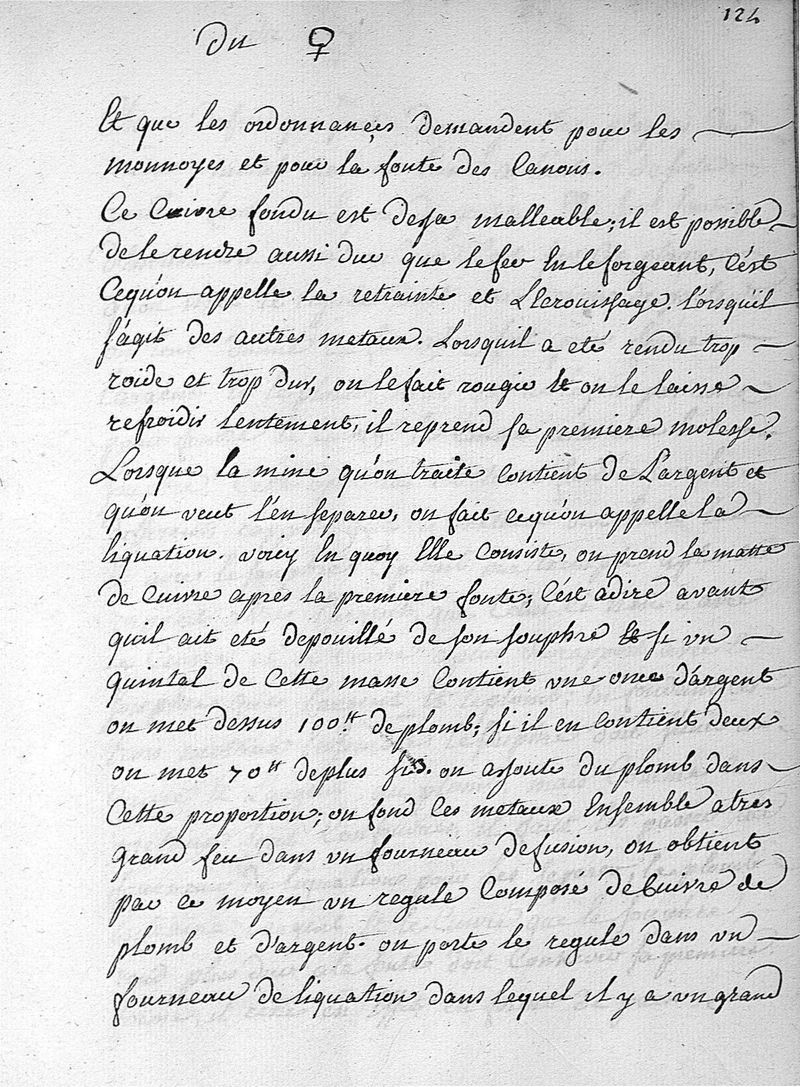 124
Du ♀
Et que les ordonnances demandent pour les
monnoyes et pour la fonte des Canons.
Ce Cuivre fondu est deja malleable; il est possible
de le rendre aussi dur que le fer En le forgeant, C'est
Cequ'on appelle la retrainte et L'Ecrouissage. lorsqu'il
s'agit des autres metaux. Lorsquil a eté rendu trop
roide et trop dur, on le fait rougir Et on le laisse
refroidir lentement, il reprend sa premiere molesse.
Lorsque la mine qu'on traite Contient de L'argent et
qu'on veut l'en separer, on fait cequ'on appelle la
liquation. voicy En quoy Elle Consiste, on prend la matte
de Cuivre après la premiere fonte; C'est adire avant
quil ait eté depouillé de son souphre Et si un
quintal de Cette masse Contient une once d'argent
on met dessus 100.tt de plomb; si il en Contient deux
on met 70tt de plus si 3. on ajoute du plomb dans
Cette proportion; on fond Ces metaux Ensemble a tres
grand feu dans un fourneau de fusion, on obtient
par ce moyen un regule Composé de Cuivre de
plomb et d'argent. on porte le regule dans un
fourneau de liquation dans lequel il y a un grand